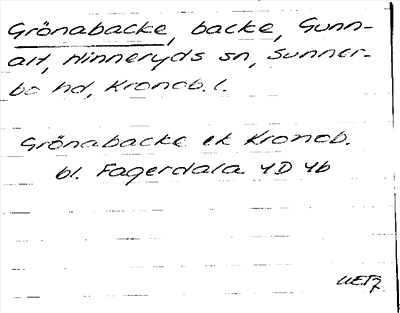 Grönabacke, backe, Gunn-
arl, Hinneryds sn, Sunner-
bo hd, Kronob. l.
Grönabacke ek Kronob.
bl. Fagerdala 4D 4b